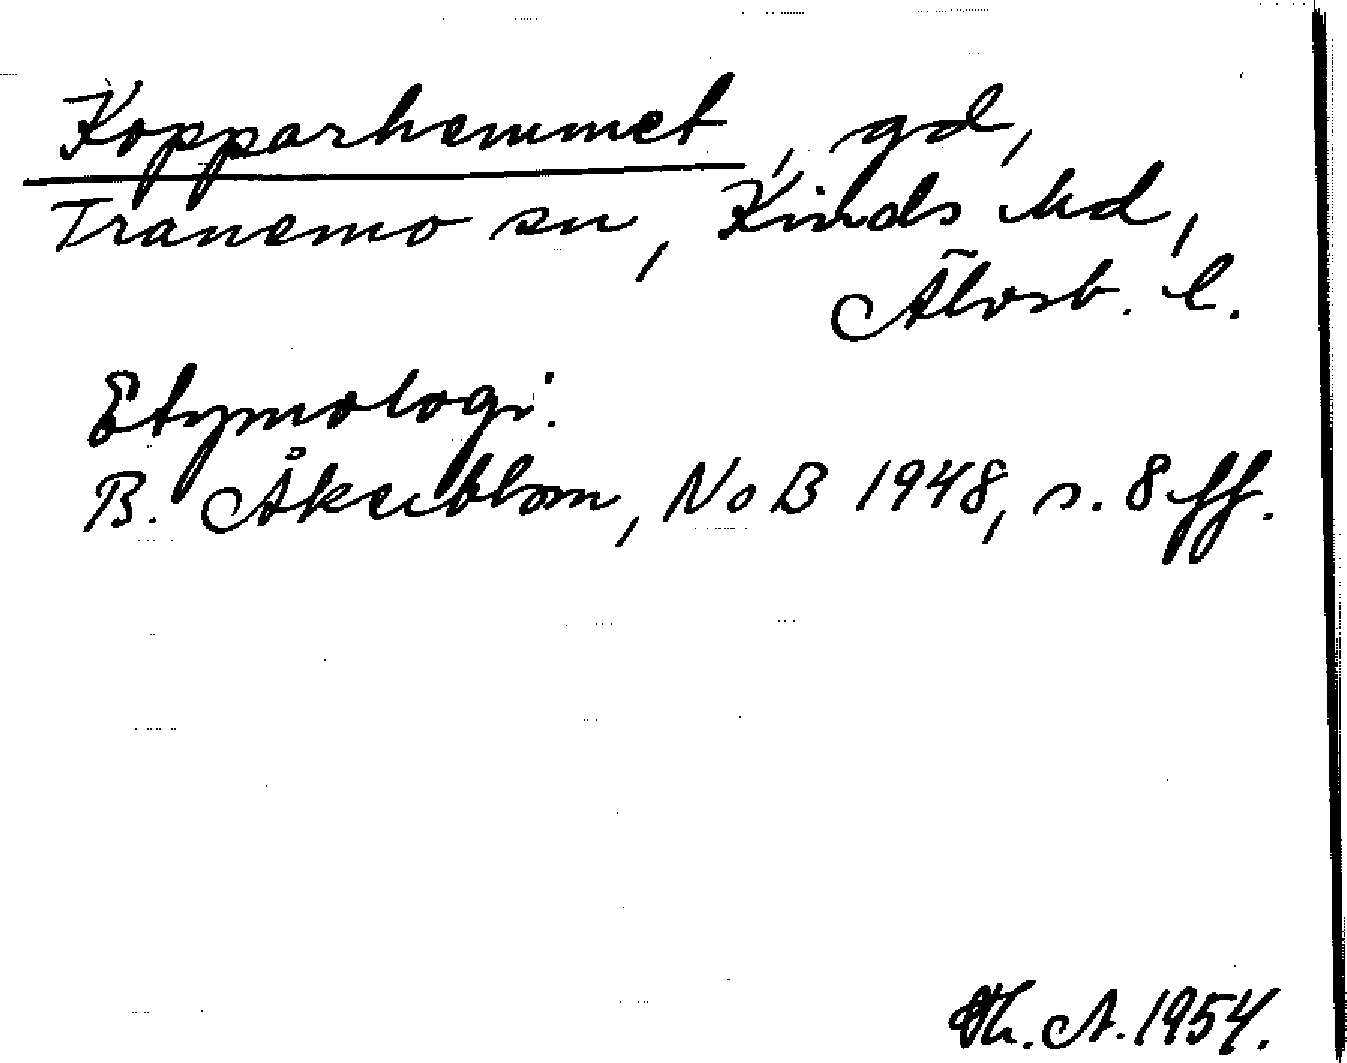 Kopparhemmet, gd,
Tranemo sn, Kinds hd,
Älvsb. l.
Etymologi:
B. Åkerblom, NoB 1948, s. 8 ff.
Th. A. 1954.